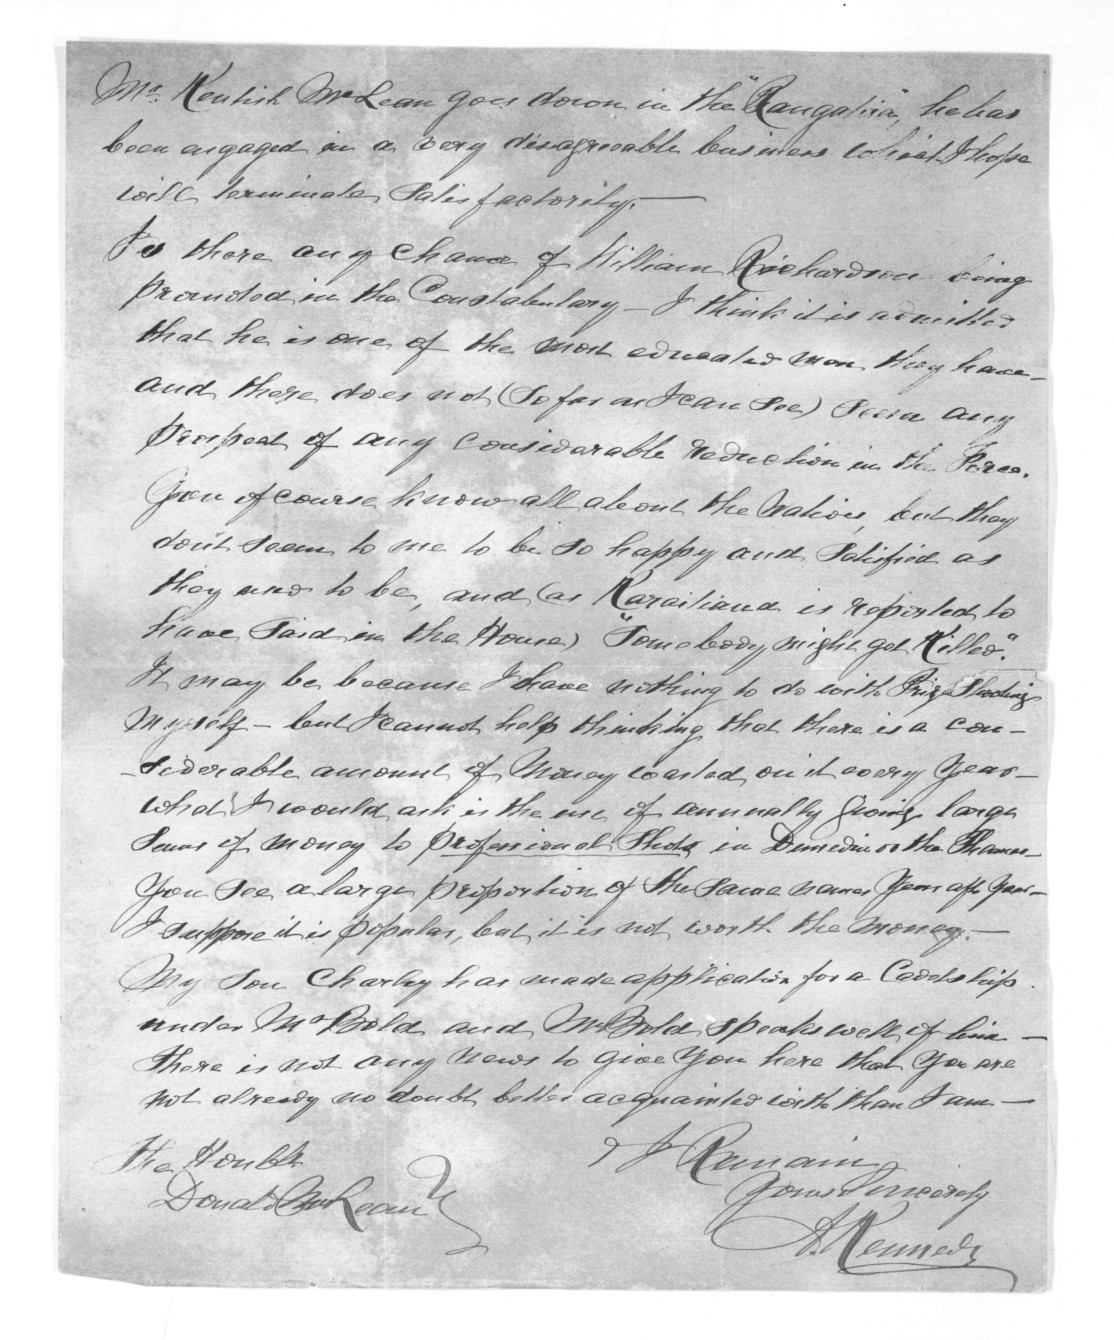 Mr. Kentish McLean goes down in the "Rangatira", he has
been engaged in a very disagreeable business which I hope
will terminate satisfactorily. —
Is there any chance of William Richardson being
promoted in the Constabulary — I think it is admitted
that he is one of the most educated men they have —
and there does not (so far as I can see) seem any
prospect of any considerable reduction in the Force.
You of course know all about the Natives, but they
don't seem to me to be so happy and satisfied as
they used to be, and (as Karaitiana is reported to
have said in the House) "Somebody might get Killed".
It may be because I have nothing to do with Prize Shooting
myself — but I cannot help thinking that there is a con-
-siderable amount of Money wasted on it every year —
what I would ask is the use of annually giving large
sums of money to professional Shots in Dunedin or the Thames —
You see a large proportion of the same names year aft year —
I suppose it is popular, but it is not worth the money. —
My Son Charley has made application for a Cadetship
under Mr Bold and Mr Bold speaks well of him —
There is not any news to give you here that you are
not already no doubt better acquainted with than I am —
& I Remain
Yours Sincerely
A. Kennedy
The Honble
Donald McLean